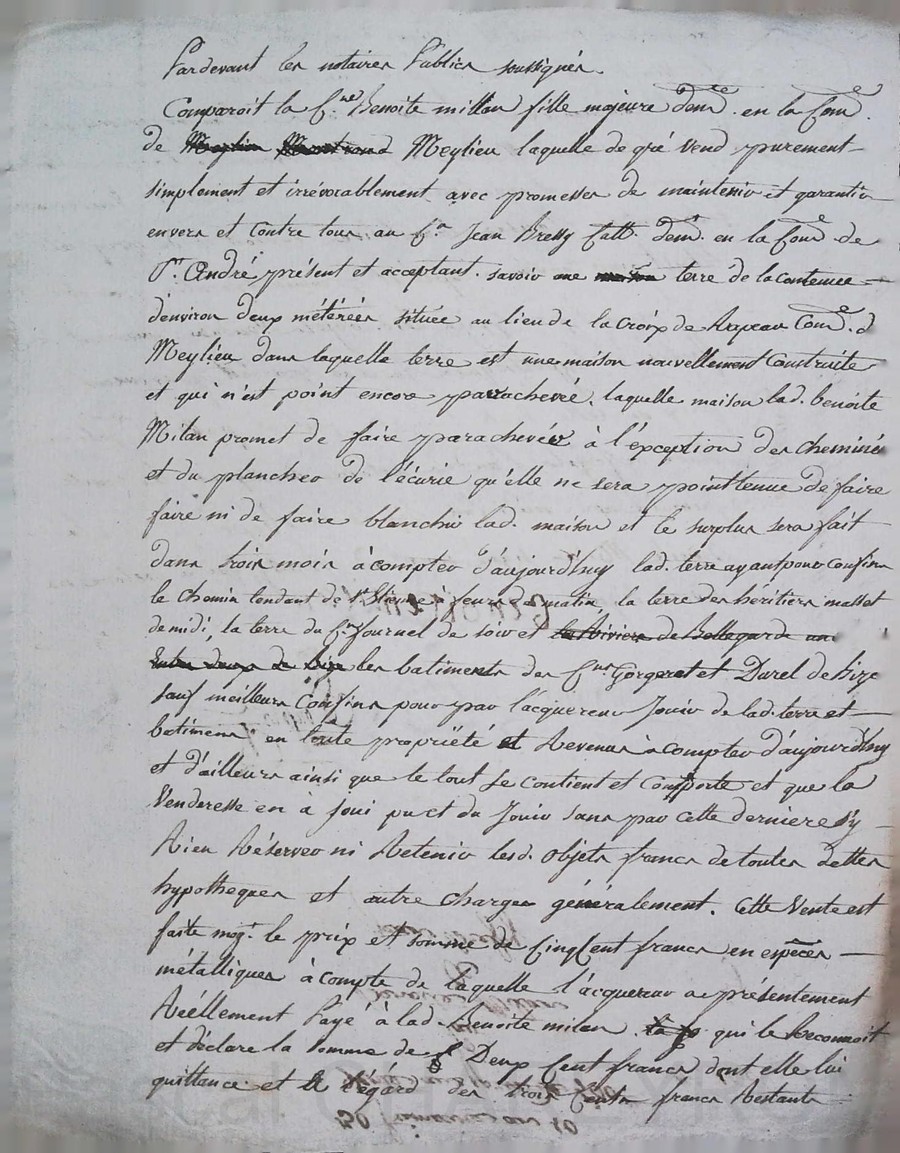 Pardevant les notaires Publics soussignés.
Comparoit la C.ne Benoite millan fille majeure dem.te en la Com.e
de Meylieu laquelle de gré vend purement
simplement et irrévocablement avec promesses de maintenir et garantir
envers et contre tous au C.n Jean Bressy Catt. dem.t en la Com.e de
St. André, présent et acceptant. savoir une terre de la contenue
d'environ deux métérées située au lieu de la Croix de Com.e d
Meylieu dans laquelle terre est une maison nouvellement Construite
et qui n'est point encore parachevée, laquelle maison lad. benoite
Milan promet de faire parachevér à l'exception des cheminé
et du plancher de l'écurie qu'elle ne sera point tenue de faire
faire ni de faire blanchir lad. maison et le surplus sera fait
dans trois mois à compter d'aujourd'huy lad. terre ayant pour confins
le chemin tendant de St. Etienne à feurs de matin, la terre des héritiers masset
de midi, la terre du C.n Journel de soir et la Riviere de Bellegarde un
Entre deux de bize les batiments des C.ens Gorgeret et Durel de bize
sauf meilleurs Confins pour par l'acquereur Jouir de lad. terre et
batimens en toute propriété et Revenus à compter d'aujourd'huy
et d'ailleurs ainsi que le tout se contient et Comporte et que la
Venderesse en a joui pu et du Jouir sans par cette derniere s'y
Rien Réserver ni Retenir lesd. objets francs de toutes dettes
hypotheques et autre charges généralement. Cette Vente est
faite moy.t le prix et somme de Cinq Cent francs en espèces
métalliques à compte de laquelle l'acquereur a présentement
Réellement Payé à lad. Benoite milan qui le Reconnoit
et déclare la Somme de Deux Cent francs dont elle lui
quittance et à l'égard des trois Cents francs Restants